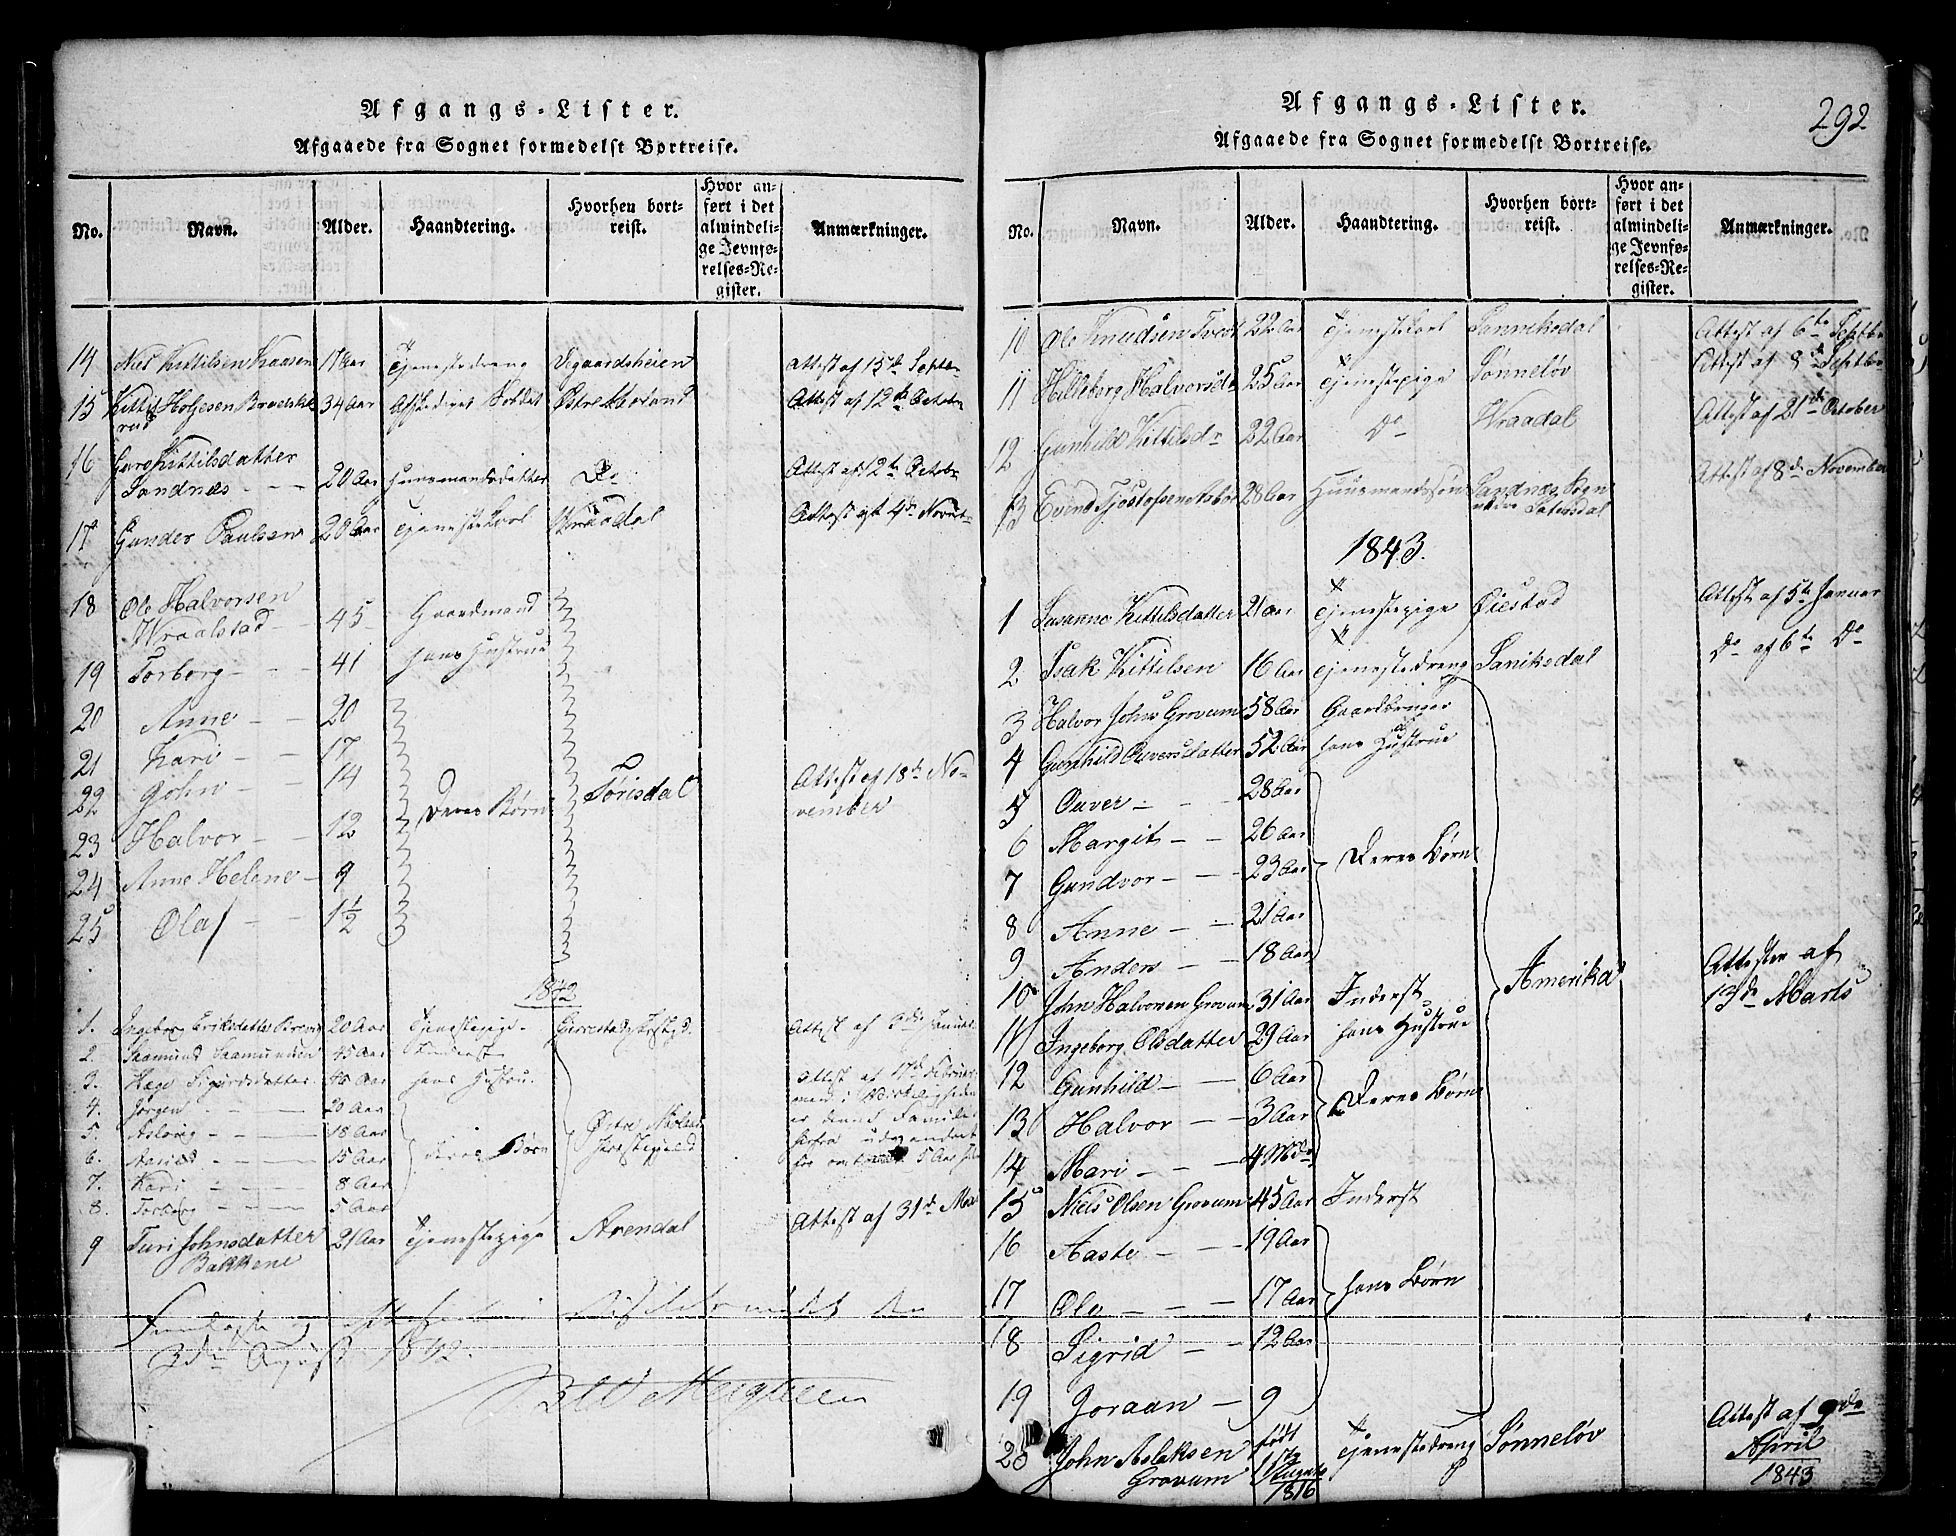 Afgangs-Lister.
Afgaaede fra Sognet formedelst Bortreise.
No. Navn. Alder. Haandtering. Hvorhen bortreist. Hvor anført i det almindelige Jevnførelses-Register. Anmærkninger.
14 Niels Kittilsen Kaasen 17 Aar Tjenestedreng Vegaardsheien Attest af 15de Septbr
15 Kittil Holjesen 34 Aar Afskediget Soldat Østre Moland Attest af 12de Octobr
16 Guro Kittilsdatter
Sandnæs 20 Aar Huusmandsdatter Do Attest af 12te Octobr
17 Gunder Paulsen 20 Aar Tjenestekarl Vraadal Attest af 4de Novbr
18 Ole Halvorsen
Wraalstad 45 Gaardmand
19 Torborg 41 hans Hustrue
20 Anne 20
21 Kari 17
22 John 14 Deres Børn Tørisdal Attest af 18de November
23 Halvor 12
24 Anne Helene 9
25 Olaf 1½
1842
1. Ingeborg Eriksdatter 20 Aar Tjenestepige Gjerestad Præstgjd. Attest af 3de Januar
2. Saamund Saamundsen 45 Aar Inderst
3. Hæge Sigurdsdatter 48 Aar hans Hustru Attest af 17de Februar
4. Jørgen 20 Aar
5. Aslaug 18 Aar Østre Moland
6. 15 Aar deres Børn Præstegjeld
7. Kari 8 Aar
8. Torborg 5 Aar
9 Turi Johnsdatter
Bakkene 21 Aar Tjenestepige Arendal Attest af 31de Mai
3die August 1842.
Afgangs-Lister.
292
Afgaaede fra Sognet formedelst Bortreise.
No. Navn. Alder. Haandtering. Hvorhen bortreist. Hvor anført i det almindelige Jevnførelses-Register. Anmærkninger.
10 Ole Knudsen Tvedt 22 Aar Tjenestekarl Sannikedal Attest af 6te Septbr
11 Hilleborg Halvorsdr 25 Aar Tjenestepige Sønneløv Attest af 8de Septbr
12 Gunhild Kittilsdr 22 Aar Do Vraadal Attest af 21de October
13 Evind Tjøstolfsen 28 Aar Huusmandssøn Sandnæs Sogn Sætersdal Attest af 8de November
1843.
1 Susanne Kittilsdatter 21 Aar Tjenestepige Øiestad Attest af 5te Januar
2 Isak Kittilsen 16 Aar Tjenestedreng Sanikedal Do af 6te Do
3 Halvor Johns Grovum 58 Aar Gaardbruger
4 Gunhild Ouversdatter 52 Aar hans Hustrue
5 Ouver 28 Aar
6 Margit 26 Aar
7 Gundvor 23 Aar Deres Børn
8 Anne 21 Aar
9 Anders 18 Aar
10 John Halvorsen Grovum 31 Aar Inderst Amerika Attester af 13de Marts
11 Ingeborg Olsdatter 29 Aar hans Hustrue
12 Gunhild 6 Aar
13 Halvor 3 Aar Deres Børn
14 Mari 4 Mdr
15 Niels Olsen Grovum 45 Aar Inderst
16 Aaste 19 Aar
17 Ole 17 Aar hans Børn
18 Sigrid 12 Aar
19 Joraan 9
20 John Aslaksen
Grovum født August 1816 Tjenestedreng Sønneløv Attest af 9de April 1843